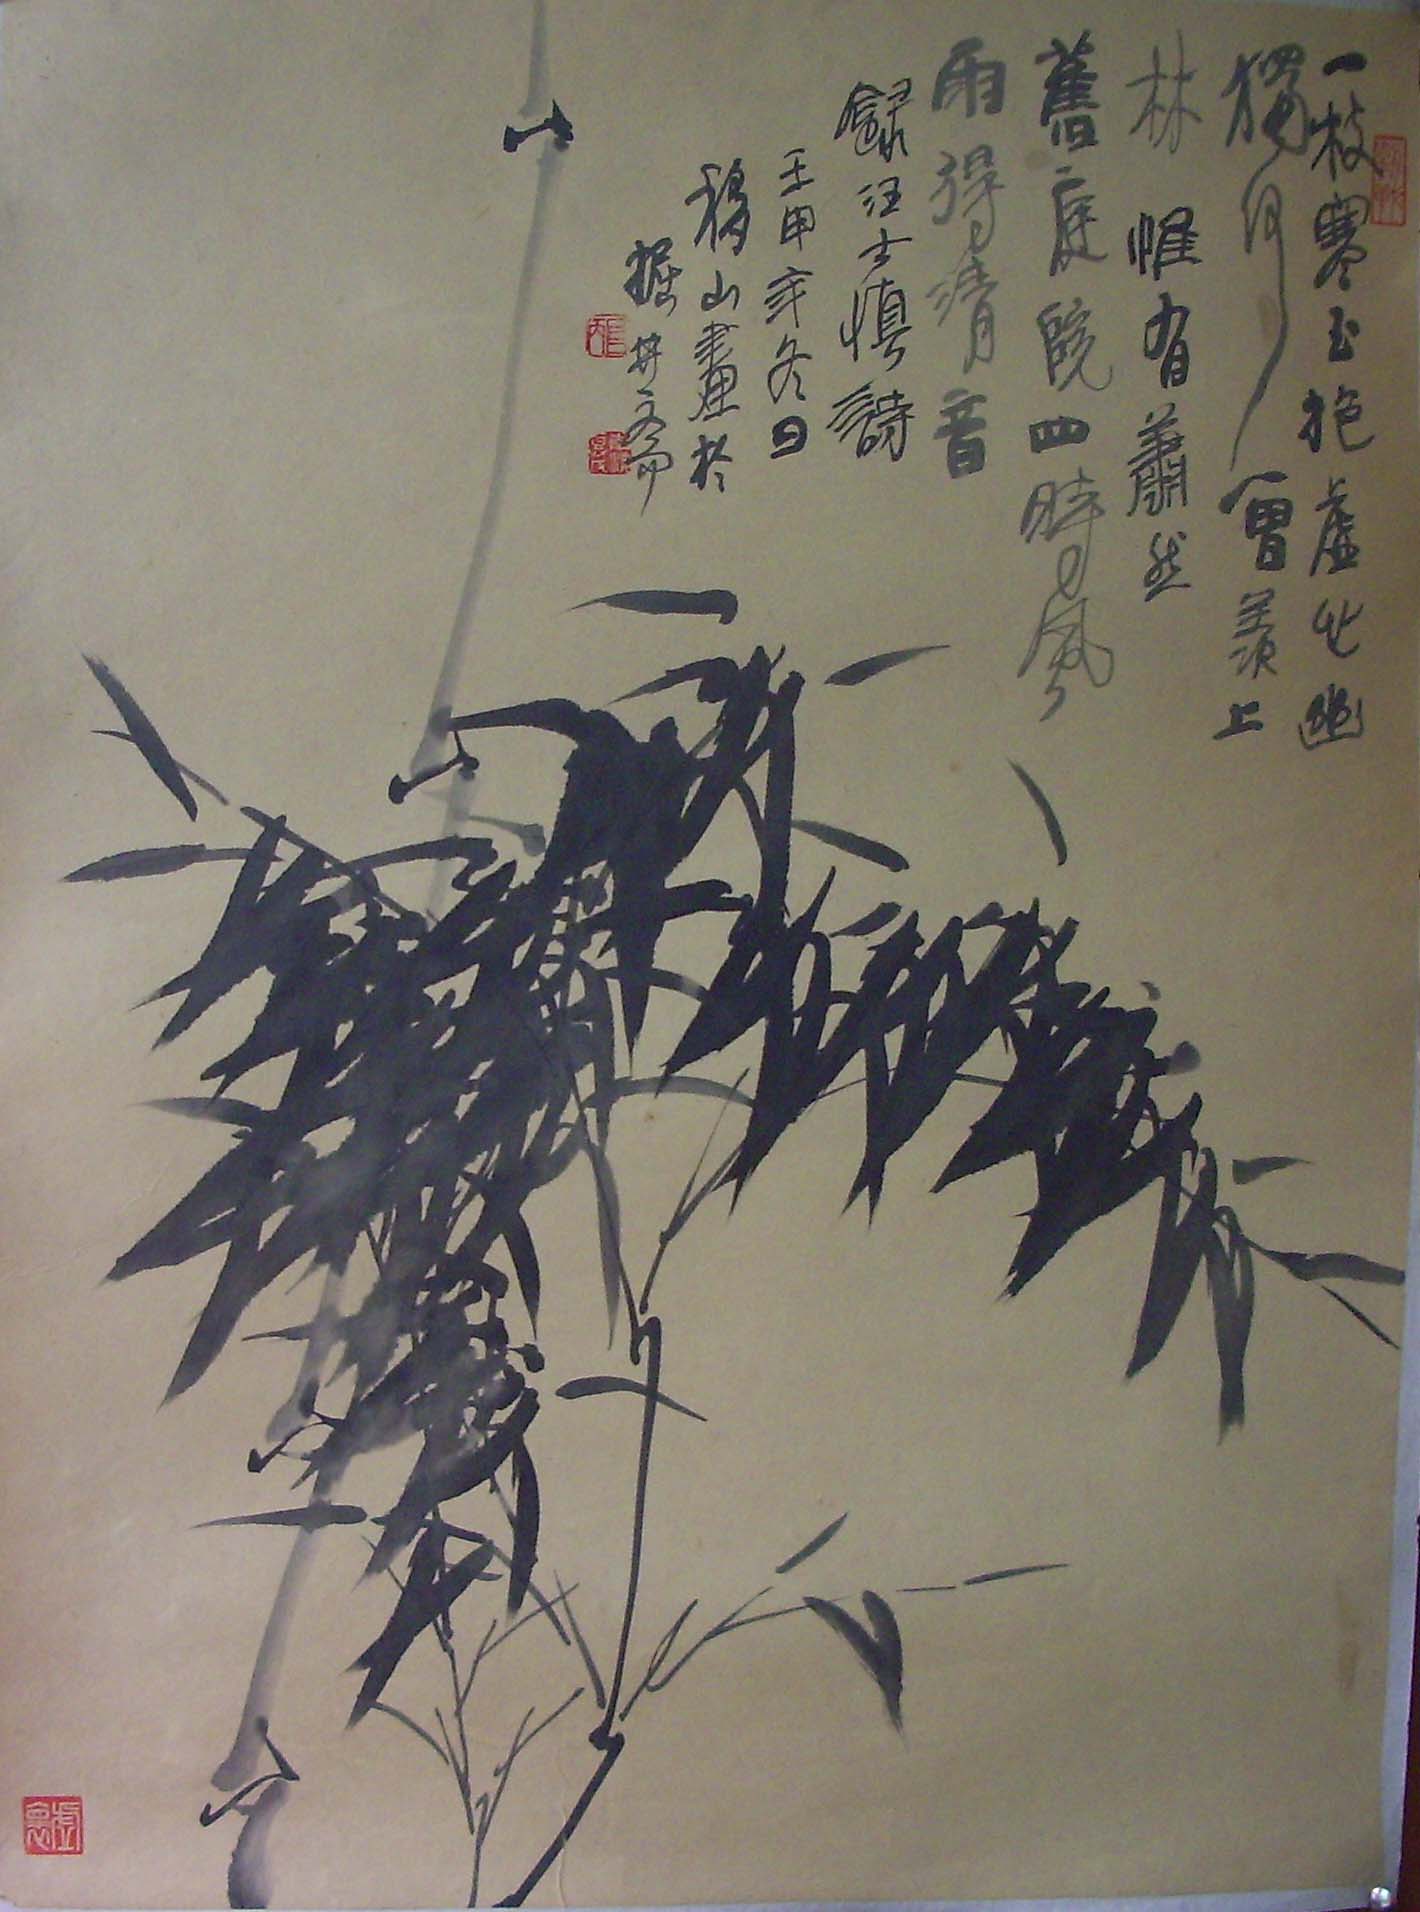 一枝寒玉抱虛心幽
獨何曾羨上
林惟有蕭然
舊庭院四時風
雨得清音
錄汪士慎詩
壬申年冬日
山畫於
掘井文齋